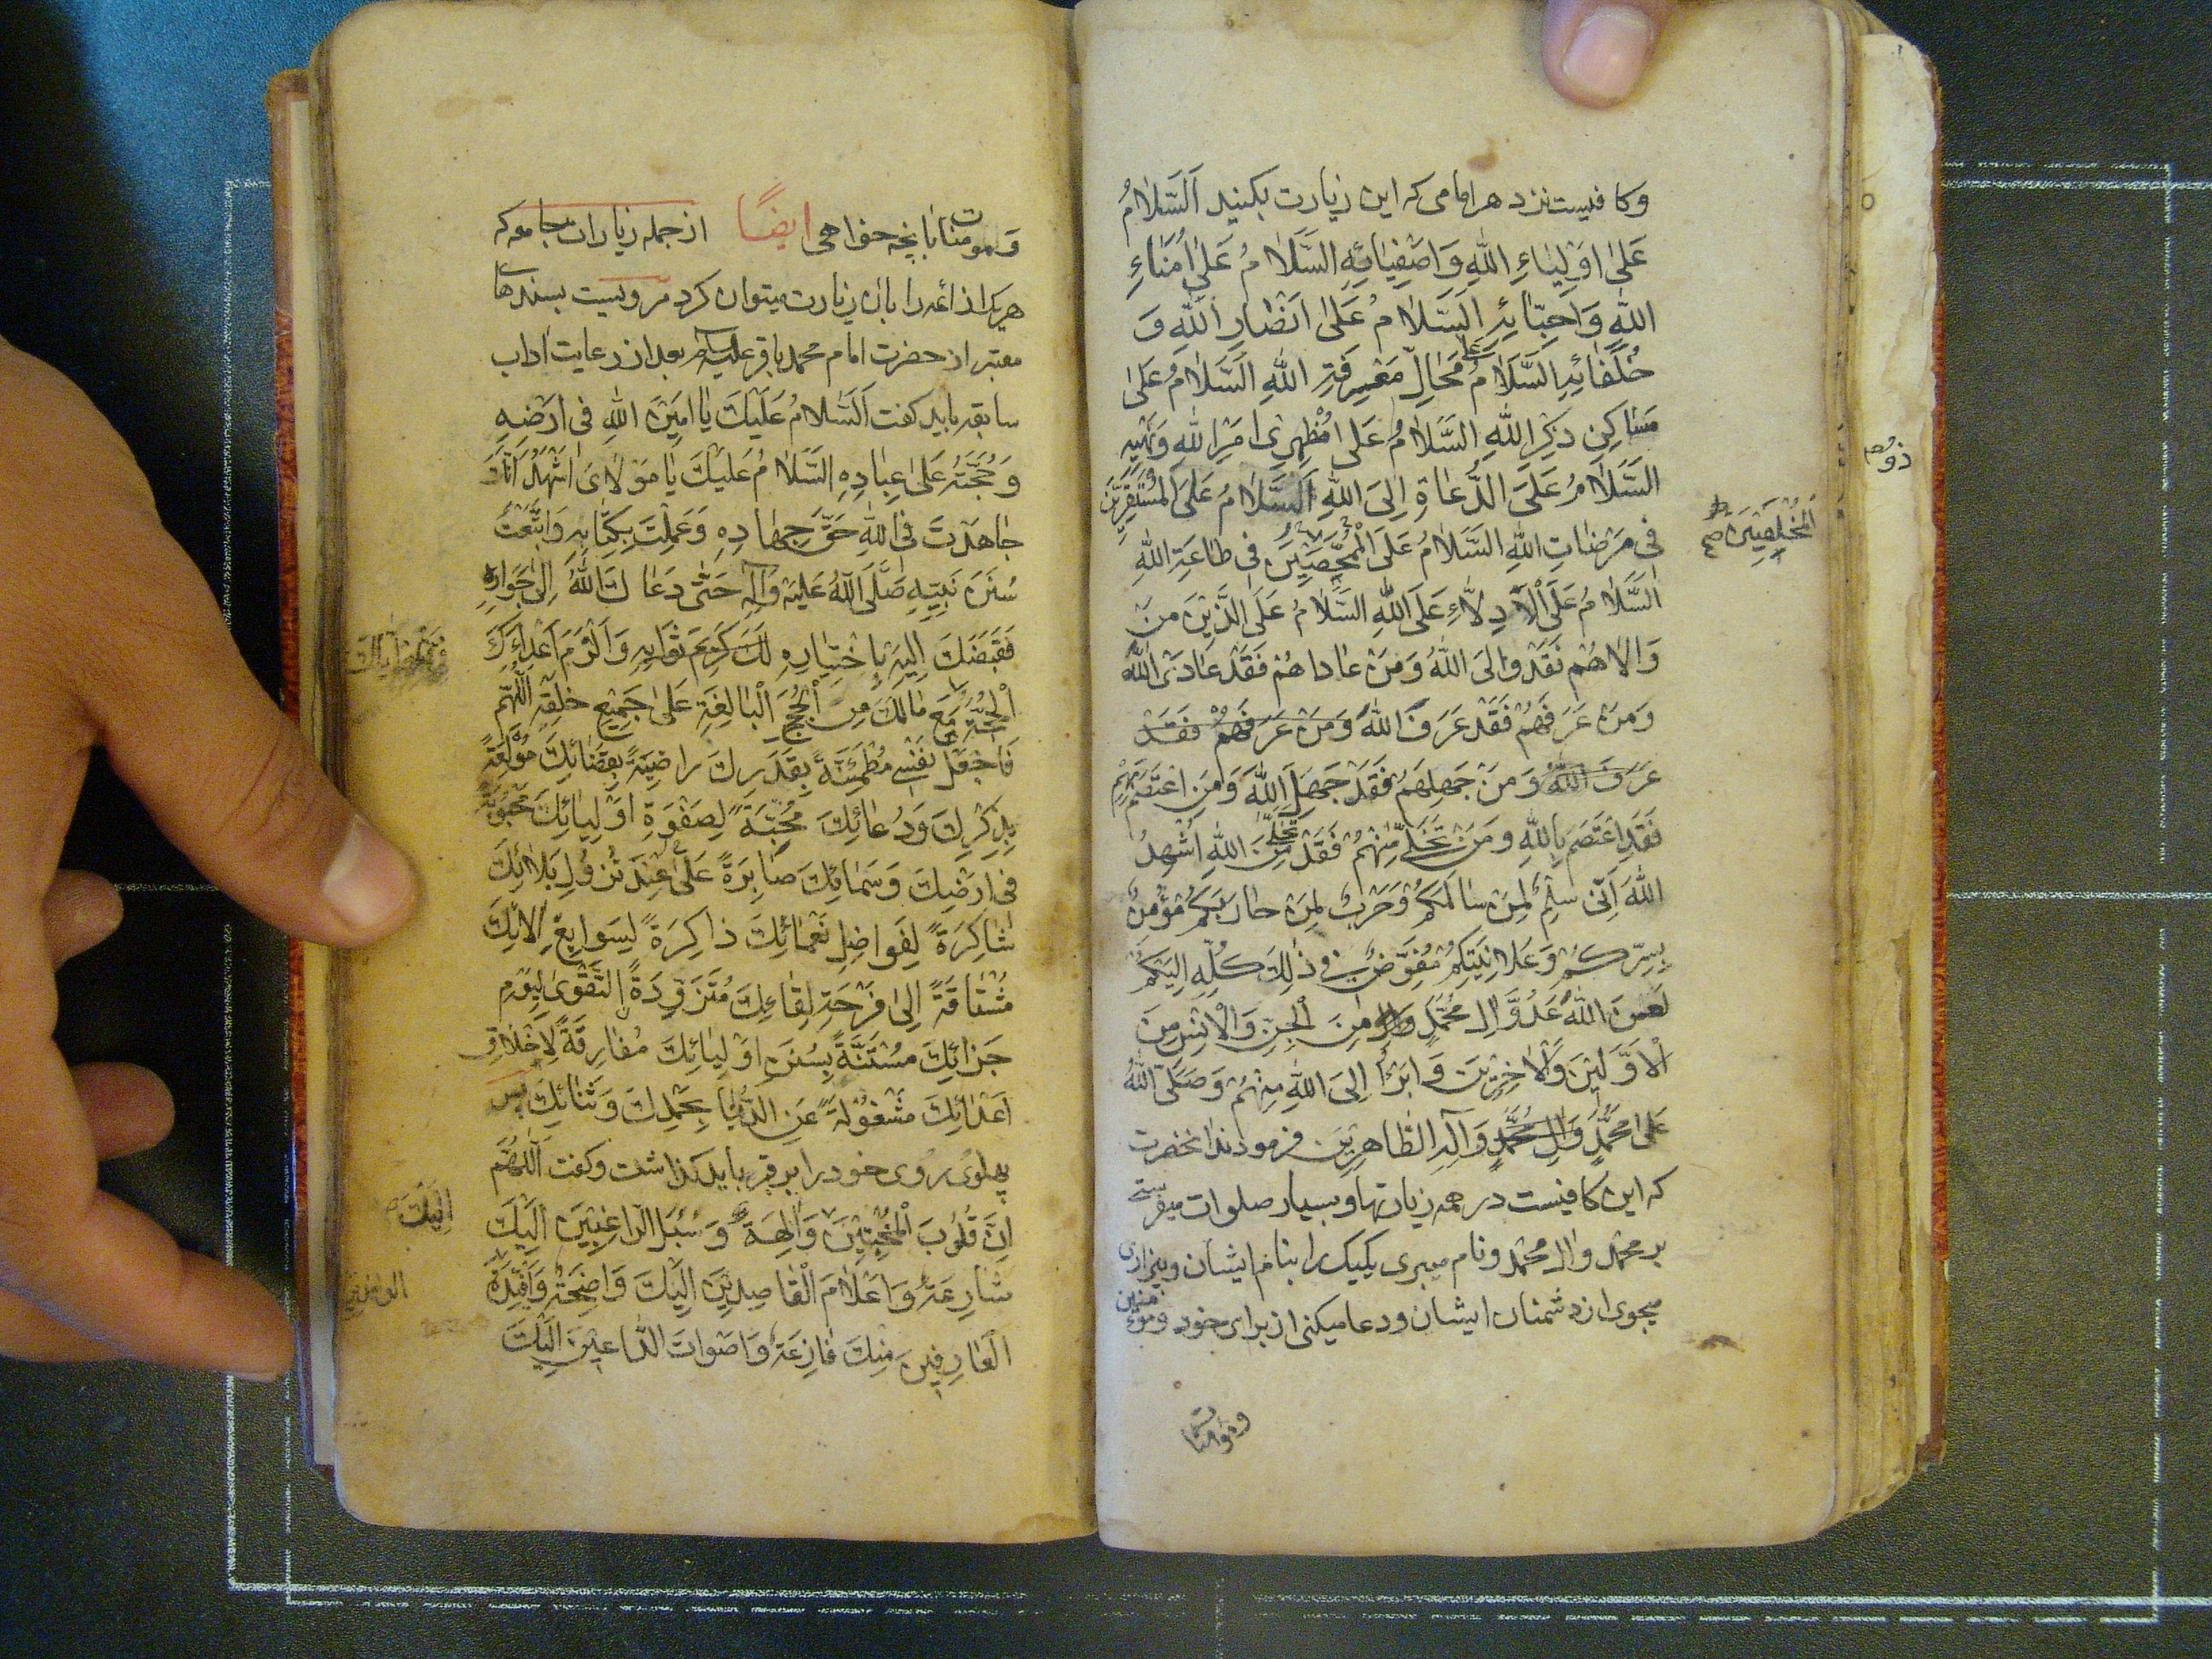 وکافیست نزد هر امامی که این زیارت بکنید اَلسَّلامُ
عَلیٰ اَوْلِیٰاءِ اللهِ وَاَصْفِیٰائِهِ السَّلامُ عَلیٰ اُمَنٰاءِ
اللهِ وَاَحِبّٰائِهِ اَلسَّلامُ عَلیٰ اَنْصٰارِ اللهِ وَ
خُلَفٰائِهِ السَّلامُ علی مَحٰالِّ مَعْرِفَةِ اللهِ السَّلامُ عَلیٰ
مَسٰاکِنِ ذِکْرِ اللهِ السَّلامُ عَلی مُظْهِرِی اَمْرِ اللهِ وَنَهْیِهِ
السَّلامُ عَلَی الدُّعٰاةِ اِلَی اللهِ اَلسَّلامُ عَلَی الْمُسْتَقِرّینَ
فی مَرْضٰاتِ اللهِ السَّلامُ عَلَی الْمُمَحَّصینَ فی طٰاعَةِ اللهِ
المُخْلِصینَ
السَّلامُ عَلَی الْاَدِلّاءِ عَلَی اللهِ السَّلامُ عَلَی الَّذینَ مَنْ
وَالاهُمْ فَقَدْ وٰالَی اللهُ وَمَنْ عٰاداهُمْ فَقَدْ عٰادَی اللهُ
وَمَنْ عَرَفَهُمْ فَقَدْ عَرَفَ اللهُ وَمَنْ عَرَفَهُمْ فَقَدْ
عَرَفَ اللهُ وَمَنْ جَهِلَهُمْ فَقَدْ جَهِلَ اللهَ وَمَنِ اعْتَصَمَ بِهِمْ
فَقَدِ اعْتَصَمَ بِاللهِ ومَنْ تَخَلّی مِنْهُمْ فَقَدْ تَخَلّی مِنَ اللهِ اُشْهِدُ
اللهَ اَنّی سِلْمٌ لِمَنْ سٰالَمَکُمْ وَحَرْبٌ لِمَنْ حٰارَبَکُمْ مُؤْمِنٌ
بِسِرِّکُمْ وَعَلانِیَتِکُمْ مُفَوِّضٌ فی ذٰلِکَ کُلِّهِ اِلَیْکُمْ
لَعَنَ اللهُ عَدُوَّ الِ مُحَمَّدٍ مِنَ الْجِنِّ وَالْاِنْسِ مِنَ
الْاَوَّلینَ وَالْاٰخِرینَ وَ اَبْرَأُ اِلَی اللهِ مِنْهُمْ وَصَلَّی اللهُ
عَلیٰ مُحَمَّدٍ وَالِ مُحَمَّدٍ وَآلِهِ الطّٰاهِرینَ فرمودند انحضرت
که این کافیست در همه زیارتها و بسیار صلوات میفرستی
بر محمد وال محمد ونام میبری یکیک را بنام ایشان وبیزاری
میجوی از دشمنان ایشان ودعا میکنی از برای خود ومؤمنین
ومؤمنات
وَمومنات بانچه خواهی ایضًا از جمله زیارات جامعه که
هریک از ائمه را بان زیارت میتوان کرد مرویست بسندهای
معتبر از حضرت امام محمد باقر علیه السلام بعد از رعایت اداب
سابقه باید گفت اَلسَّلامُ عَلَیْکَ یٰا اَمینَ اللهِ فی اَرْضِهِ
وَحُجَّتَهُ عَلیٰ عِبٰادِهِ السَّلامُ عَلَیْکَ یٰا مَوْلایَ اَشْهَدُ اَنَّکَ
جٰاهَدْتَ فِی اللهِ حَقَّ جِهٰادِهِ وَعَمِلْتَ بِکِتٰابِهِ وَاتَّبَعْتَ
سُنَنَ نَبِیِّهِ صَلَّی اللهُ عَلَیْهِ وَآلِهِ حَتّی دَعٰاکَ اللهُ اِلیٰ جَوٰارِهِ
فَقَبَضَکَ اِلَیْهِ بِاِخْتِیٰارِهِ لَکَ کَریمَ ثَوٰابِهِ وَاَلْزَمَ اَعْدٰاءَکَ
الْحُجَّةَ مَعَ مٰا لَکَ مِنَ الْحُجَجِ الْبٰالِغَةِ عَلیٰ جَمیعِ خَلْقِهِ اَللّهُمَّ
فَاجْعَلْ نَفْسی مُطْمَئِنَّةً بِقَدَرِکَ رٰاضِیَةً بِقَضٰائِکَ مُولَعَةً
بِذِکْرِکَ وَدُعٰائِکَ مُحِبَّةً لِصَفْوَةِ اَوْلِیٰائِکَ مَحْبُوبَةً
فی اَرْضِکَ وَسَمٰائِکَ صٰابِرَةً عَلیٰ عِنْدَ نُزُولِ بَلٰائِکَ
شٰاکِرَةً لِفَوٰاضِلِ نَعْمٰائِکَ ذٰاکِرَةً لِسَوٰابِغِ اٰلائِکَ
مُشْتٰاقَةً اِلیٰ فَرْحَةِ لِقٰائِکَ مُتَزَوِّدَةً التَّقْویٰ لِیَوْمِ
جَزٰائِکَ مُسْتَنَّةً بِسُنَنِ اَوْلِیٰائِکَ مُفٰارِقَةً لِاَخْلاقِ
اَعْدٰائِکَ مَشْغُولَةً عَنِ الدُّنْیٰا بِحَمْدِکَ وَثَنٰائِکَ پس
پهلوی روی خود را بر قبر باید گذاشت وگفت اَللّهُمَّ
اِنَّ قُلُوبَ الْمُخْبِتینَ وٰالِهَةٌ وَسُبُلَ الرّاغِبینَ اِلَیْکَ
اِلَیْکَ
شٰارِعَةٌ وَاَعْلامَ الْقٰاصِدینَ اِلَیْکَ وٰاضِحَةٌ وَاَفْئِدَةَ
الْعٰارِفینَ مِنْکَ فٰازِعَةٌ وَاَصْوٰاتَ الدّٰاعینَ اِلَیْکَ